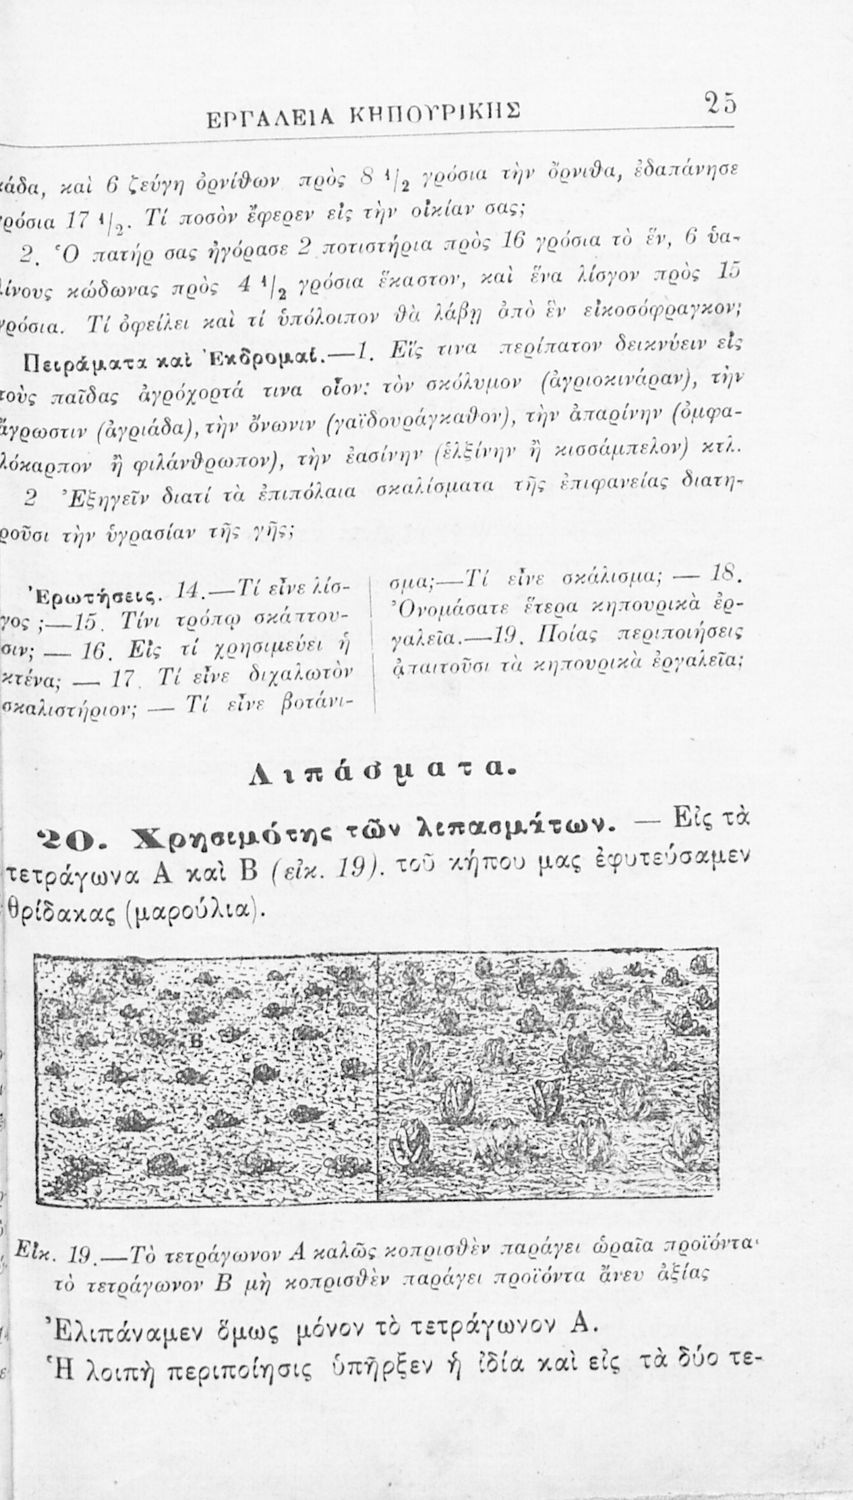 ΕΡΓΑΛΕΙΑ ΚΗΠΟΥΡΙΚΗΣ 25
κάδα, καὶ 6 ζεύγη ὀρνίθων πρὸς 8 1/2 γρόσια τὴν ὄρνιθα, ἐδαπάνησε
γρόσια 17 1/2. Τί ποσὸν ἔφερεν εἰς τὴν οἰκίαν σας;
2. Ὁ πατήρ σας ἠγόρασε 2 ποτιστήρια πρὸς 16 γρόσια τὸ ἕν, 6 ὑα-
λίνους κώδωνας πρὸς 4 1/2 γρόσια ἕκαστον, καὶ ἕνα λίσγον πρὸς 15
γρόσια. Τί ὀφείλει καὶ τί ὑπόλοιπον θὰ λάβῃ ἀπὸ ἓν εἰκοσόφραγκον;
Πειράματα καὶ Ἐκδρομαί.—1. Εἴς τινα περίπατον δεικνύειν εἰς
τοὺς παῖδας ἀγρόχορτά τινα οἷον: τὸν σκόλυμον (ἀγριοκινάραν), τὴν
ἄγρωστιν (ἀγριάδα), τὴν ὄνωνιν (γαϊδουράγκαθον), τὴν ἀπαρίνην (ὀμφα-
λόκαρπον ἢ φιλάνθρωπον), τὴν ἑασίνην (ἑλξίνην ἢ κισσάμπελον) κτλ.
2 Ἐξηγεῖν διατί τὰ ἐπιπόλαια σκαλίσματα τῆς ἐπιφανείας διατη-
ροῦσι τὴν ὑγρασίαν τῆς γῆς;
Ἐρωτήσεις. 14.—Τί εἶνε λίσ-
γος ;—15. Τίνι τρόπῳ σκάπτου-
σιν; — 16. Εἰς τί χρησιμεύει ἡ
κτένα; — 17. Τί εἶνε διχαλωτὸν
σκαλιστήριον; — Τί εἶνε βοτάνι-
σμα;—Τί εἶνε σκάλισμα; — 18.
Ὀνομάσατε ἕτερα κηπουρικὰ ἐρ-
γαλεῖα.—19. Ποίας περιποιήσεις
ἀπαιτοῦσι τὰ κηπουρικὰ ἐργαλεῖα;
Λιπάσματα.
20. Χρησιμότης τῶν λιπασμάτων. — Εἰς τὰ
τετράγωνα Α καὶ Β (εἰκ. 19). τοῦ κήπου μας ἐφυτεύσαμεν
θρίδακας (μαρούλια).
Β
Εἰκ. 19.—Τὸ τετράγωνον Α καλῶς κοπρισθὲν παράγει ὡραῖα προϊόντα·
τὸ τετράγωνον Β μὴ κοπρισθὲν παράγει προϊόντα ἄνευ ἀξίας
Ἐλιπάναμεν ὅμως μόνον τὸ τετράγωνον Α.
Ἡ λοιπὴ περιποίησις ὑπῆρξεν ἡ ἰδία καὶ εἰς τὰ δύο τε-